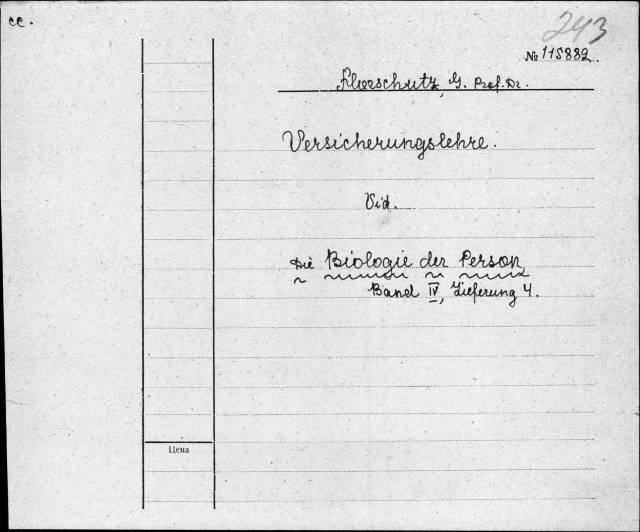 cc.
243
№ 115882.
Florschutz, G. Prof. Dr.
Versicherungslehre.
Vid.
Die Biologie der Person,
Band IV, Lieferung 4.
Цена